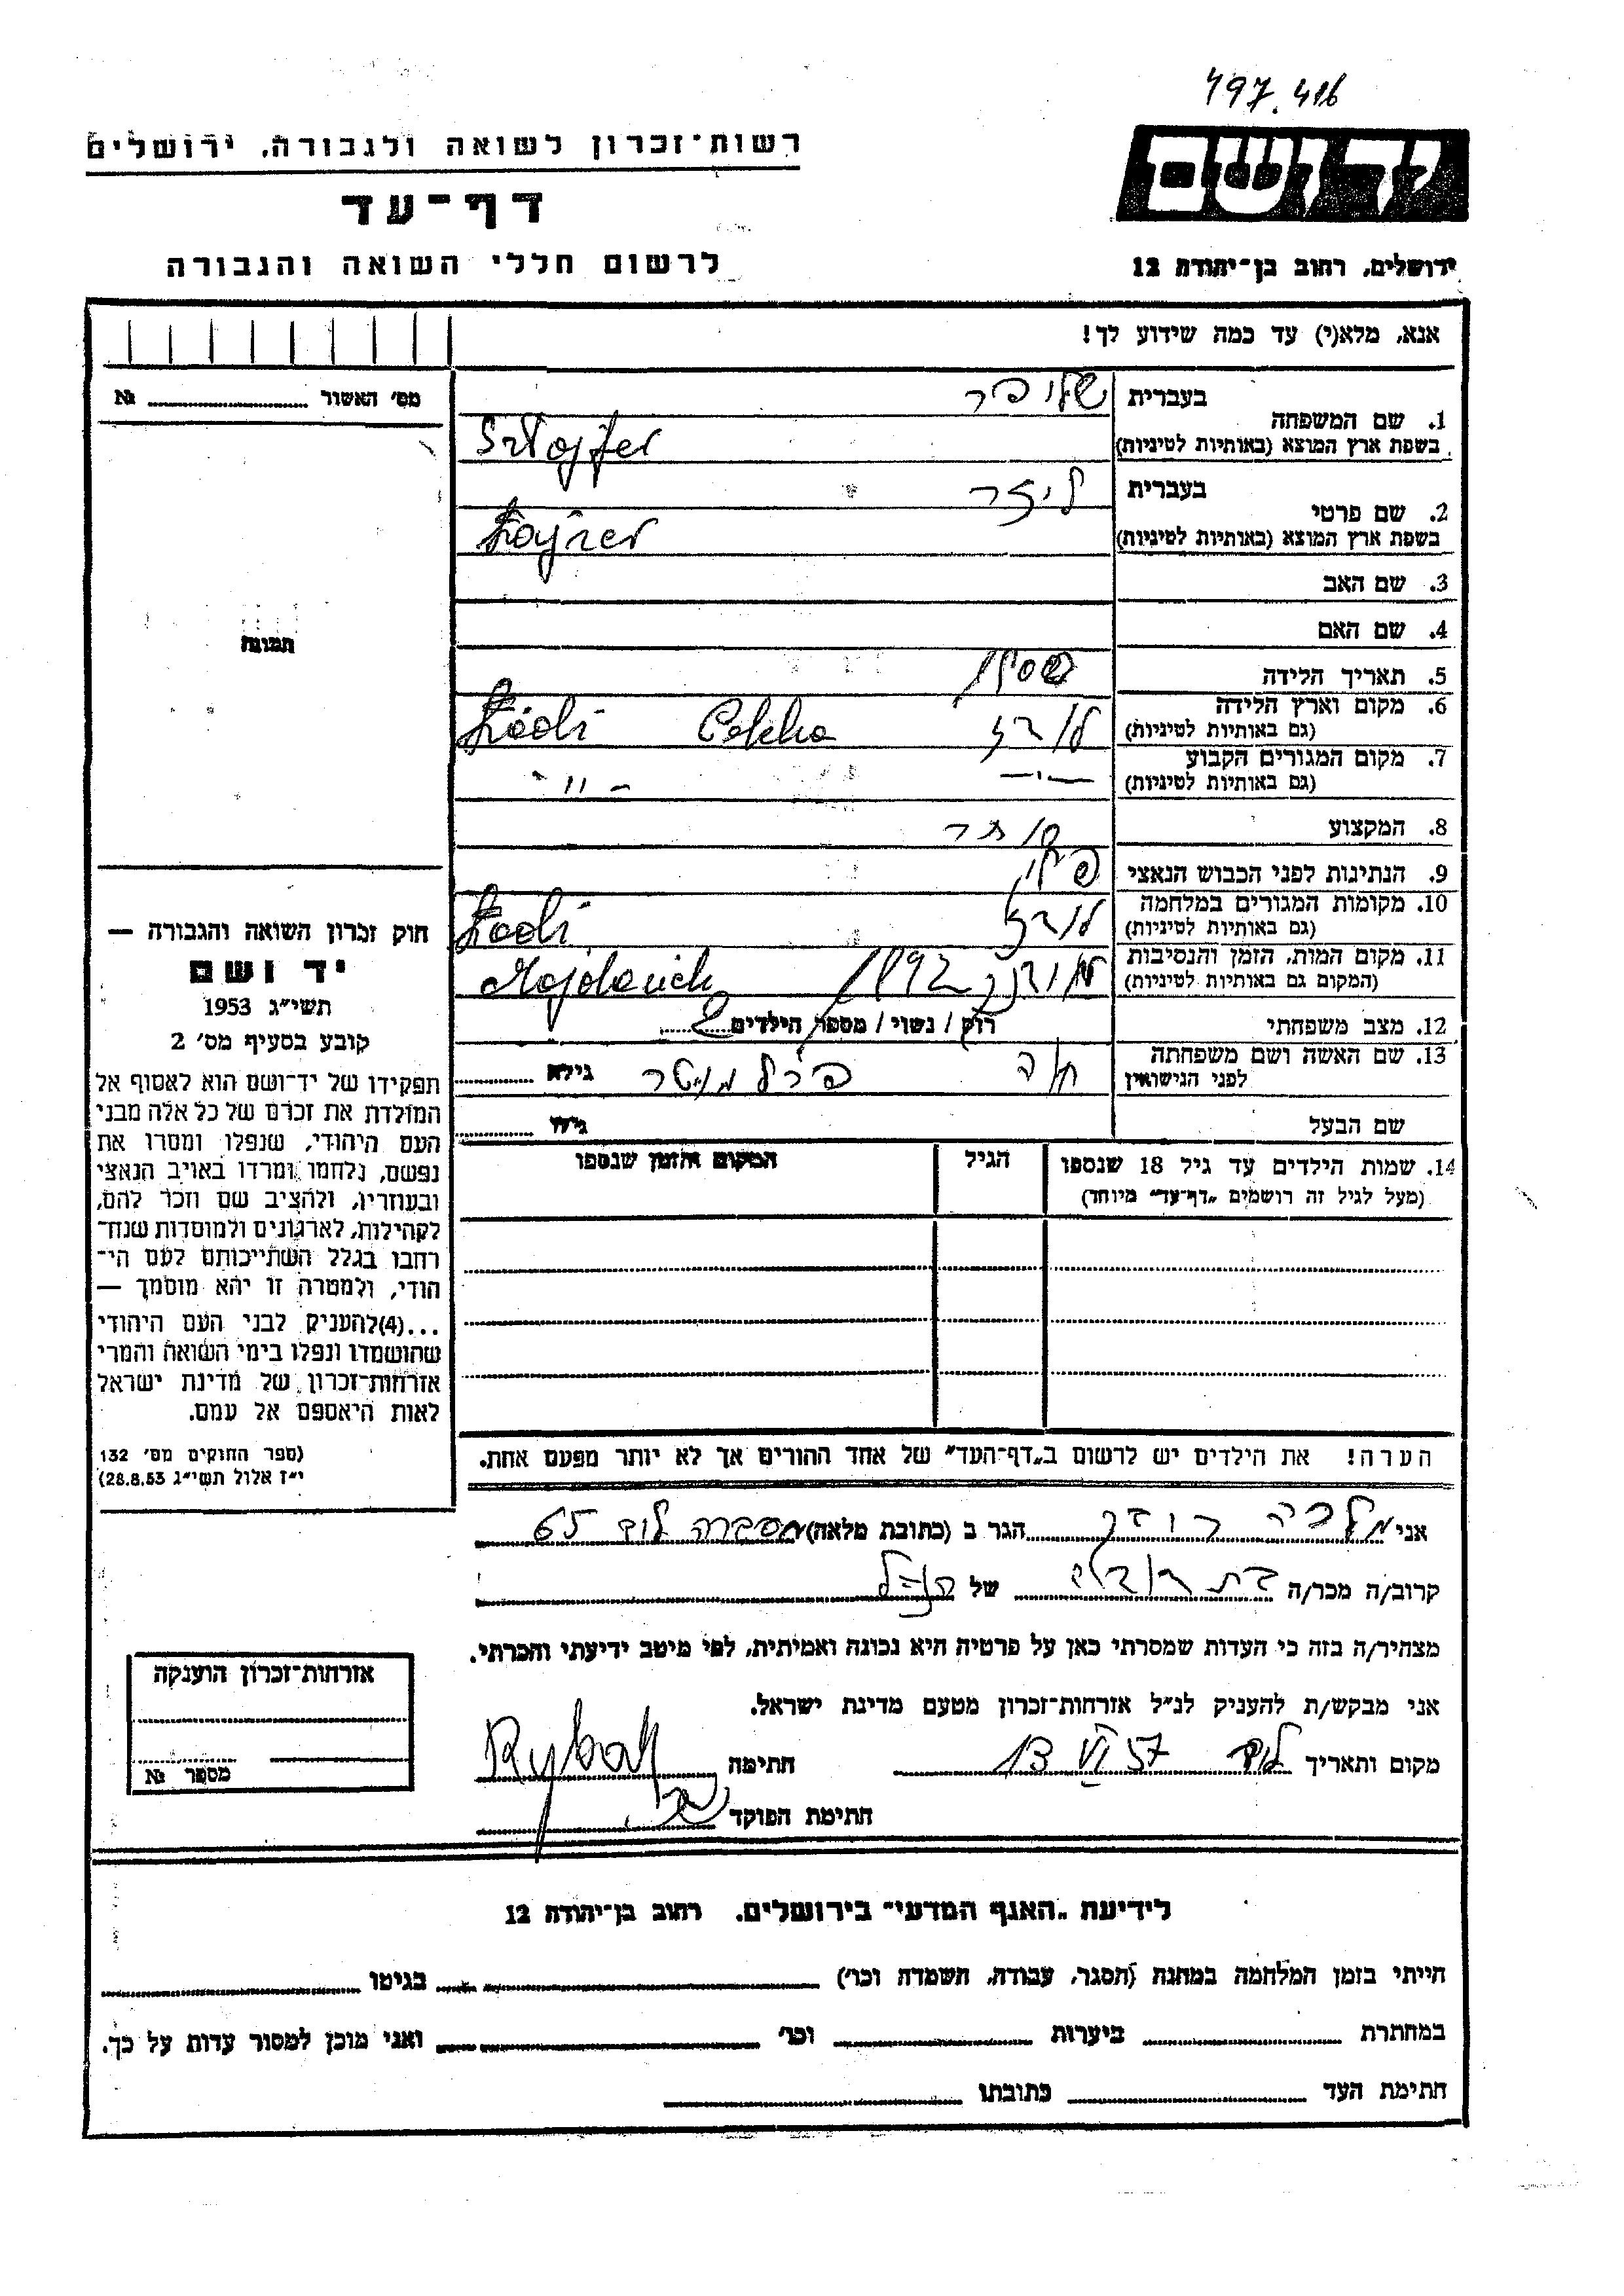 497.416
יד ושם
רשות־זכרון לשואה ולגבורה, ירושלים
דף־עד
לרשום חללי השואה והגבורה
ירושלים, רחוב בן־יהודה 12
אנא, מלא(י) עד כמה שידוע לך!
מס׳ האשור № 
1. שם המשפחה בעברית
Sztojfer
בשפת ארץ המוצא (באותיות לטיניות)
2. שם פרטי בעברית ליזר
Łajzer
בשפת ארץ המוצא (באותיות לטיניות)
3. שם האב
4. שם האם
תמונה
5. תאריך הלידה
6. מקום וארץ הלידה לודז Polska Łódź
(גם באותיות לטיניות)
7. מקום המגורים הקבוע -"- -"-
(גם באותיות לטיניות)
8. המקצוע סוחר
9. הנתינות לפני הכבוש הנאצי פולני
10. מקומות המגורים במלחמה לודז Łódź
(גם באותיות לטיניות)
11. מקום המות, הזמן והנסיבות מידנק 1942 Majdanek
(המקום גם באותיות לטיניות)
12. מצב משפחתי רוק / נשוי / מספר הילדים 2
13. שם האשה ושם משפחתה חוה פרלמוטר גילה
לפני הנישואין
שם הבעל גילו
14. שמות הילדים עד גיל 18 שנספו הגיל המקום והזמן שנספו
(מעל לגיל זה רושמים „דף־עד" מיוחד)
הערה! את הילדים יש לרשום ב„דף־העד" של אחד ההורים אך לא יותר מפעם אחת.
חוק זכרון השואה והגבורה —
יד ושם
תשי״ג 1953
קובע בסעיף מס׳ 2
תפקידו של יד־ושם הוא לאסוף אל
המולדת את זכרם של כל אלה מבני
העם היהודי, שנפלו ומסרו את
נפשם, נלחמו ומרדו באויב הנאצי
ובעוזריו, ולהציב שם וזכר להם,
לקהילות, לארגונים ולמוסדות שנח־
רחבו בגלל השתייכותם לעם הי־
הודי, ולמטרה זו יהא מוסמך —
...(4)להעניק לבני העם היהודי
שהושמדו ונפלו בימי השואה והמרי
אזרחות־זכרון של מדינת ישראל
לאות היאספם אל עמם.
(ספר החוקים מס׳ 132
י״ז אלול תשי״ג 28.8.53)
אני מלכה הגר ב (כתובת מלאה) מסברה לוד 65
קרוב/ה מכר/ה בת של הנ״ל
מצהיר/ה בזה כי העדות שמסרתי כאן על פרטיה היא נכונה ואמיתית, לפי מיטב ידיעתי והכרתי.
אני מבקש/ת להעניק לנ״ל אזרחות־זכרון מטעם מדינת ישראל.
מקום ותאריך לוד 13 VI 57 חתימה Rybak
חתימת הפוקד
אזרחות־זכרון הוענקה
מספר №
לידיעת „האגף המדעי" בירושלים, רחוב בן־יהודה 12
הייתי בזמן המלחמה במחנה (הסגר, עבודה, השמדה וכו׳) בגיטו
במחתרת ביערות וכו׳ ואני מוכן למסור עדות על כך.
חתימת העד כתובתו